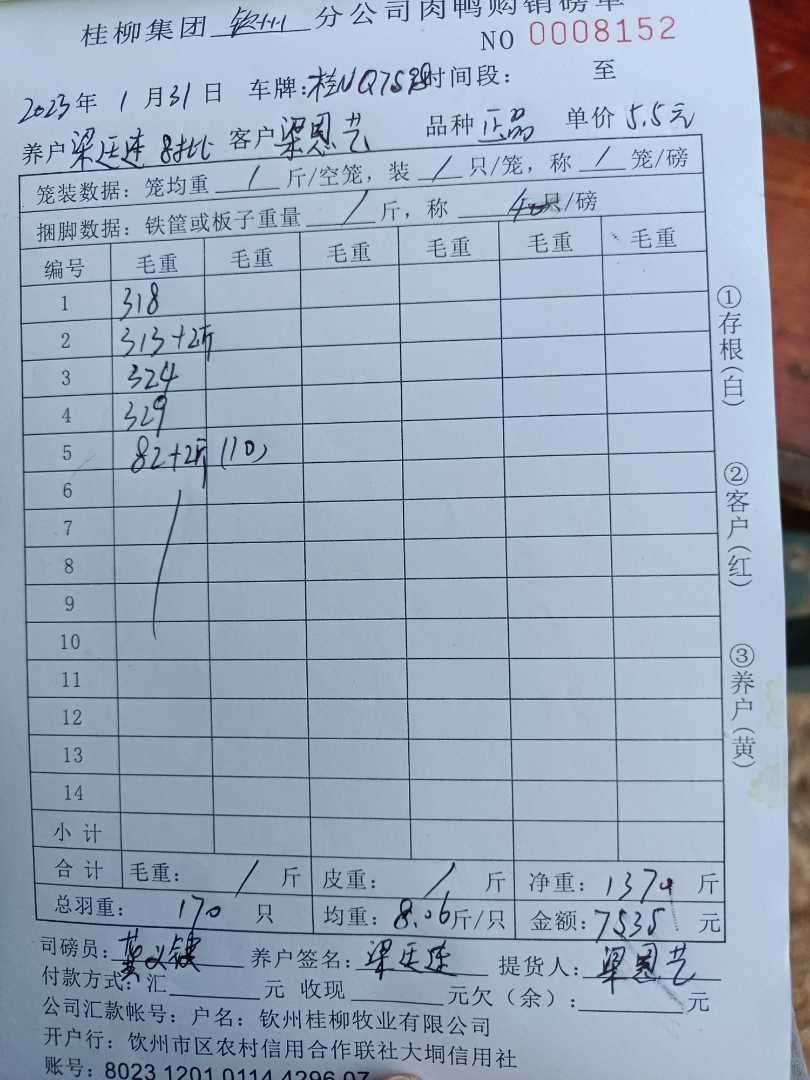 桂柳集团 钦州 分公司肉鸭购销磅单
NO 0008152
2023年 1月31日 车牌:桂NQ7598 时间段: 至
养户 梁廷连 8批 客户 梁恩艺 品种 正品 单价 5.5元
笼装数据: 笼均重 / 斤/空笼, 装 / 只/笼, 称 / 笼/磅
捆脚数据: 铁筐或板子重量 / 斤, 称 40只/磅
编号 毛重 毛重 毛重 毛重 毛重 毛重
1 318
2 313+2斤
3 324
4 329
5 82+2斤 (10)
6
7
8
9
10
11
12
13
14
小计
合计 毛重: / 斤 皮重: / 斤 净重: 1370 斤
总羽重: 170 只 均重: 8.06斤/只 金额: 7535 元
司磅员: 养户签名: 梁廷连 提货人: 梁恩艺
付款方式: 汇 元 收现 元欠(余): 元
公司汇款帐号: 户名: 钦州桂柳牧业有限公司
开户行: 钦州市区农村信用合作联社大垌信用社
账号: 8023 1201 0114 4296 07
①存根(白)
②客户(红)
③养户(黄)